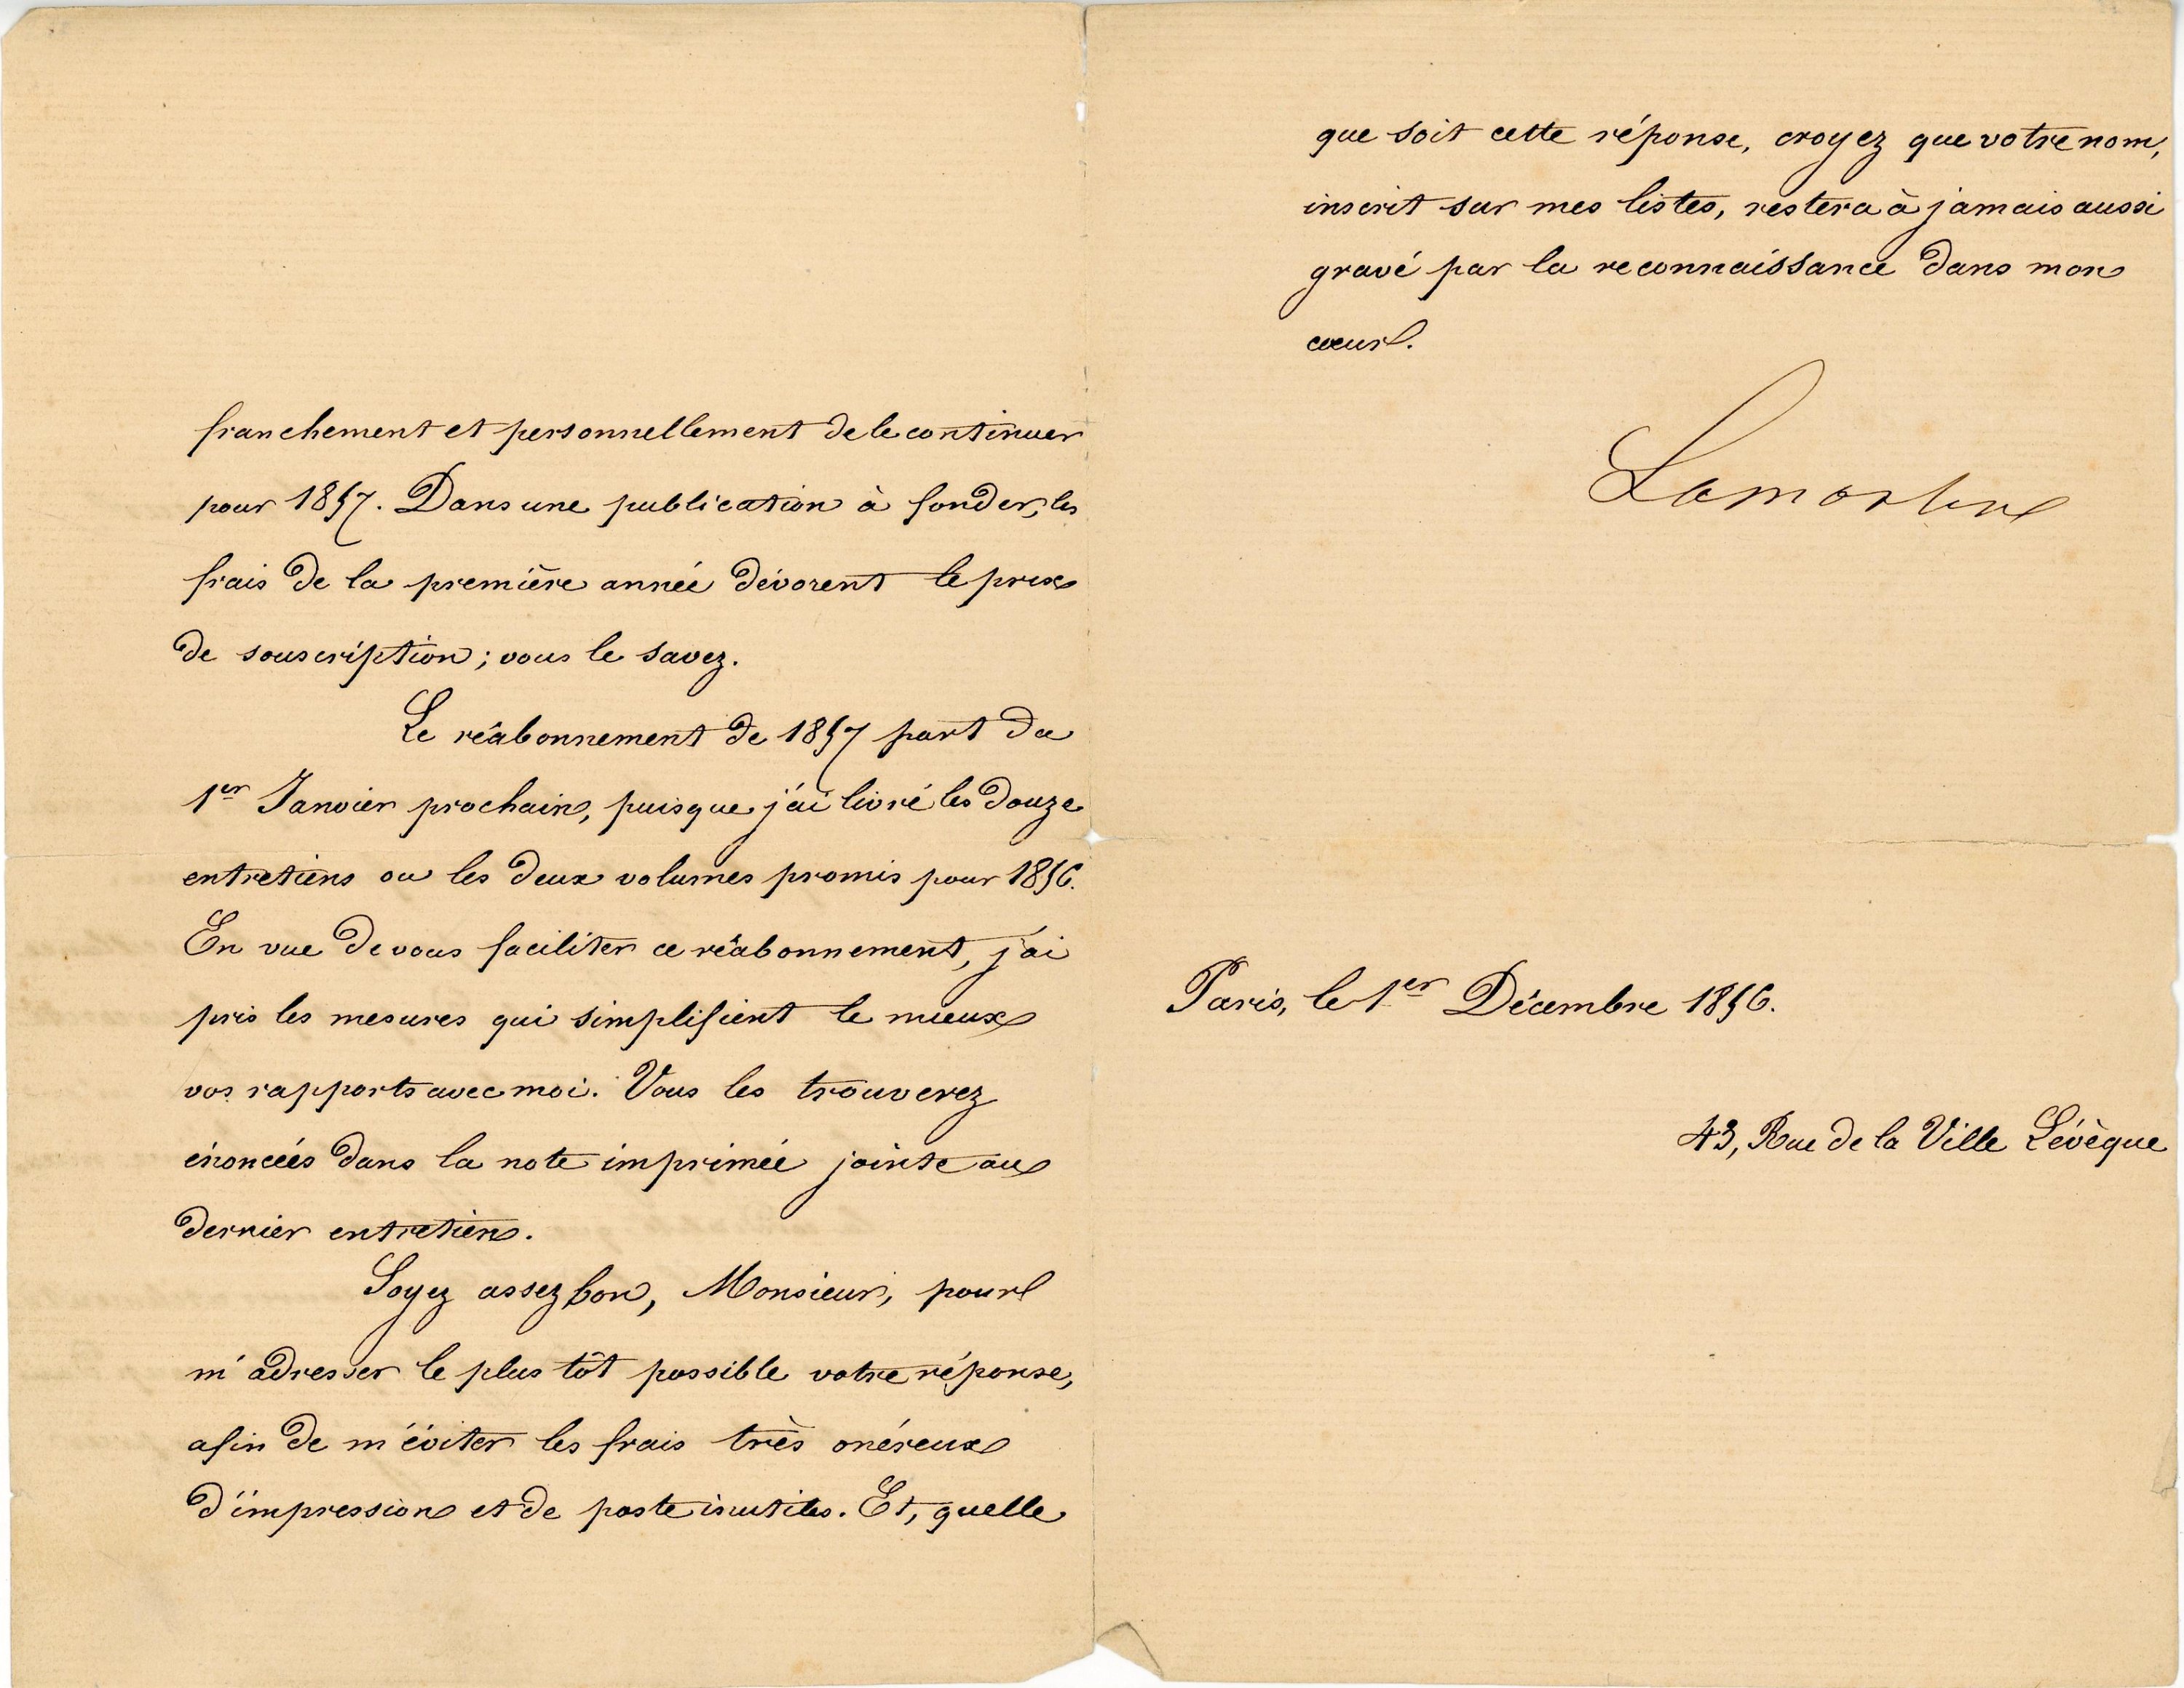 franchement et personnellement de le continuer
pour 1857. Dans une publication à fonder, les
frais de la première année dévorent le prix
de souscription; vous le savez.
Le réabonnement de 1857 part du
1er Janvier prochain, puisque j'ai livré les douze
entretiens ou les deux volumes promis pour 1856.
En vue de vous faciliter ce réabonnement, j'ai
pris les mesures qui simplifient le mieux
vos rapports avec moi. Vous les trouverez
énoncées dans la note imprimée jointe au
dernier entretien.
Soyez assez bon, Monsieur, pour
m'adresser le plus tôt possible votre réponse,
afin de m'éviter les frais très onéreux
d'impression et de poste inutiles. Et, quelle
que soit cette réponse, croyez que votre nom,
inscrit sur mes listes, restera à jamais aussi
gravé par la reconnaissance dans mon
cœur.
Lamartine
Paris, le 1er Décembre 1856.
43, Rue de la Ville Lévèque